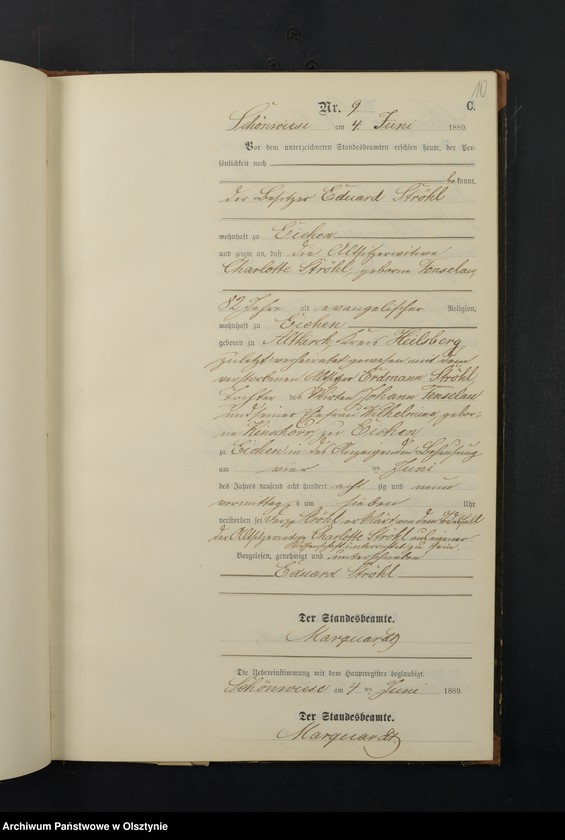 10
Nr. 9
C.
Schönwiese am 4. Juni 1889.
Vor dem unterzeichneten Standesbeamten erschien heute, der Per-
sönlichkeit nach
bekannt,
der Besitzer Eduard Ströhl
wohnhaft zu Eichen
und zeigte an, daß die Altsitzerwitwe
Charlotte Ströhl, geborne Tonselau
82 Jahre alt evangelischer Religion,
wohnhaft zu Eichen
geboren zu Altkirch, Kreis Heilsberg,
zuletzt verheiratet gewesen mit dem
verstorbenen Altsitzer Erdmann Ströhl,
Tochter des Wirten Johann Tonselau
und seiner Ehefrau Wilhelmine, gebor-
ne zu Eichen,
zu Eichen in des Anzeigenden Behausung
am vier ten Juni
des Jahres tausend acht hundert acht zig und neun
vormittags um sieben Uhr
verstorben sei Ströhl erklärt von dem Todesfall
der Altsitzerwitwe Charlotte Ströhl aus eigener
Wissenschaft unterrichtet zu sein.
Vorgelesen, genehmigt und unterschrieben
Eduard Ströhl
Der Standesbeamte.
Marquardt
Die Uebereinstimmung mit dem Hauptregister beglaubigt.
Schönwiese am 4 ten Juni 1889.
Der Standesbeamte.
Marquardt.
Archiwum Państwowe w Olsztynie